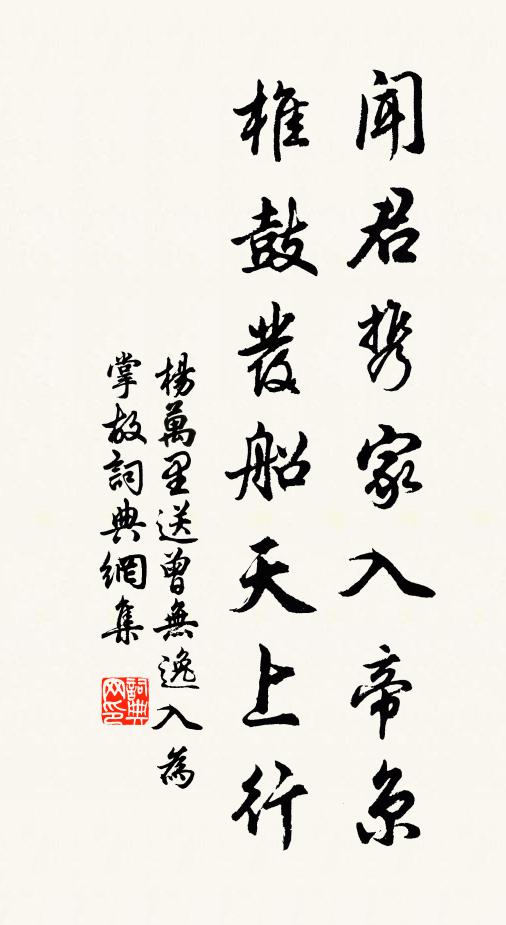 闻君携家入帝京
椎鼓发船天上行
楊萬里送曾無逸入為
掌故詞典網集
詞典网印